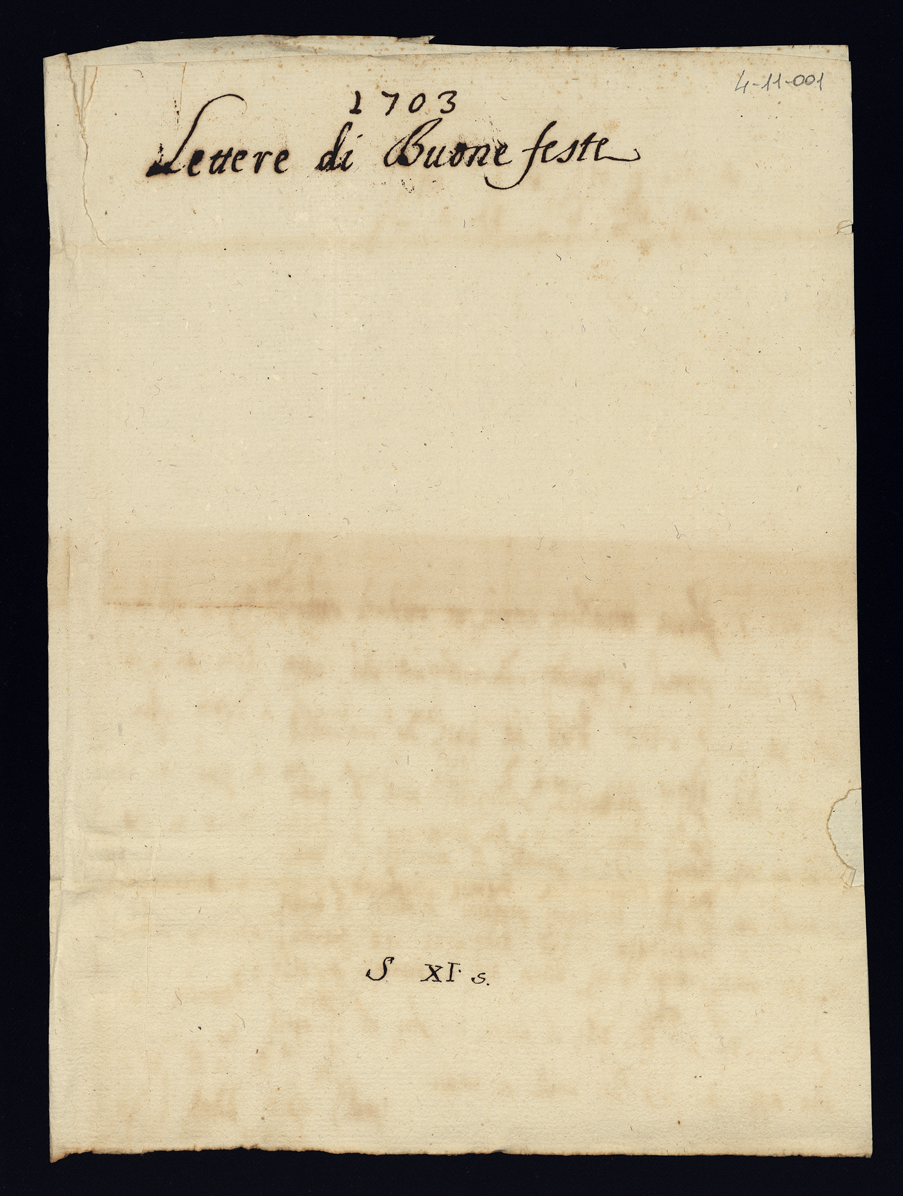 4-11-001
1703
Lettere di Buone feste
S XI. s.